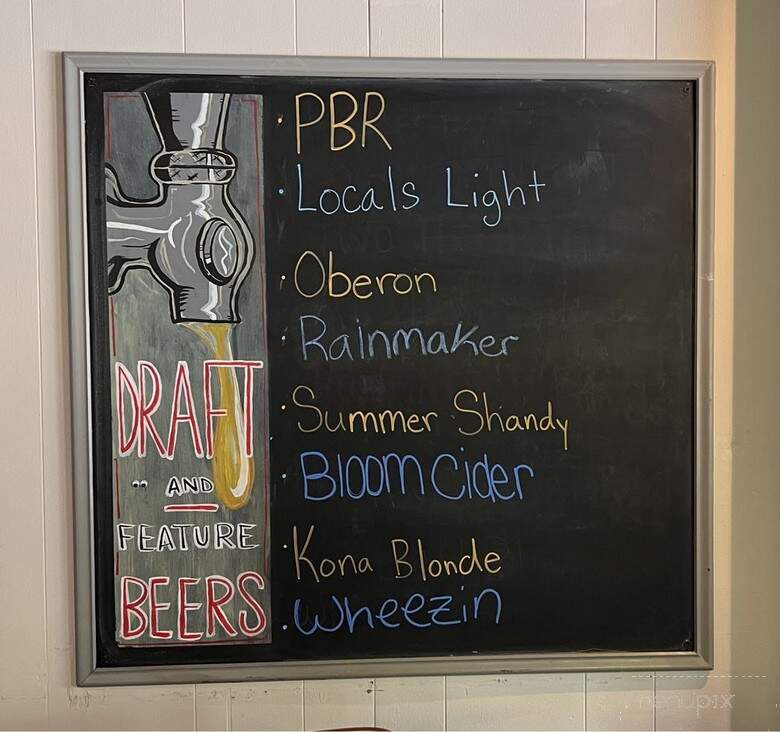 DRAFT
AND
FEATURE
BEERS
· PBR
· Locals Light
· Oberon
· Rainmaker
· Summer Shandy
· Bloom Cider
· Kona Blonde
· Wheezin
menupix